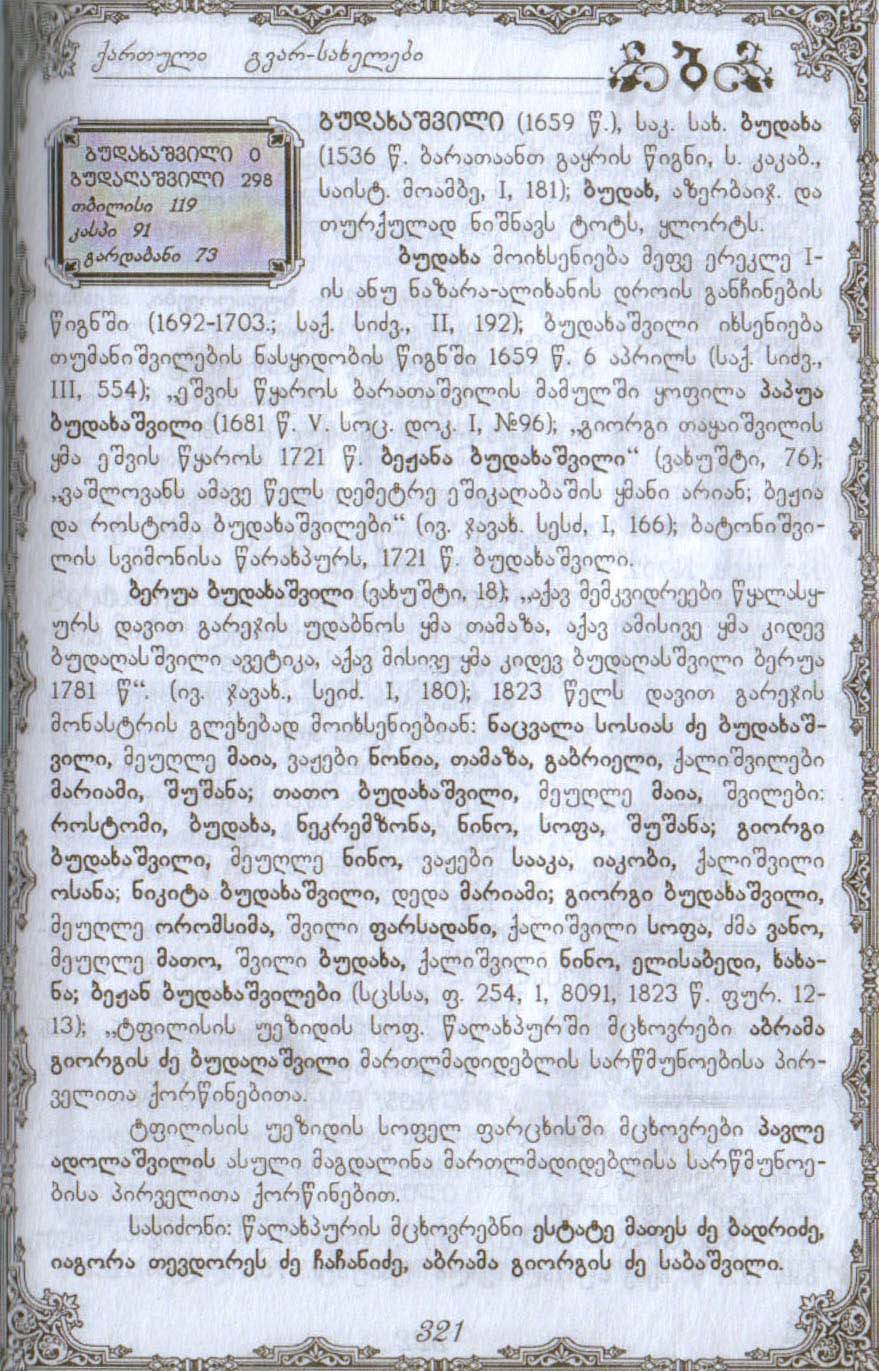 ქართული გვარ-სახელები
ბუდახაშვილი 0
ბუდაღაშვილი 298
თბილისი 119
კასპი 91
გარდაბანი 73
ბუდახაშვილი (1659 წ.), საკ. სახ. ბუდახა
(1536 წ. ბარათაანთ გაყრის წიგნი, ს. კაკაბ.,
საისტ. მოამბე, I, 181); ბუდახ, აზერბაიჯ. და
თურქულად ნიშნავს ტოტს, ყლორტს.
ბუდახა მოიხსენიება მეფე ერეკლე I-
ის ანუ ნაზარა-ალიხანის დროის განჩინების
წიგნში (1692-1703.; საქ. სიძვ., II, 192); ბუდახაშვილი იხსენიება
თუმანიშვილების ნასყიდობის წიგნში 1659 წ. 6 აპრილს (საქ. სიძვ.,
III, 554); „ეშვის წყაროს ბარათაშვილის მამულში ყოფილა პაპუა
ბუდახაშვილი (1681 წ. V. სოც. დოკ. I, №96); „გიორგი თაყაიშვილის
ყმა ეშვის წყაროს 1721 წ. ბეჟანა ბუდახაშვილი“ (ვახუშტი, 76);
„ვაშლოვანს ამავე წელს დემეტრე ეშიკაღაბაშის ყმანი არიან; ბეჟია
და როსტომა ბუდახაშვილები“ (ივ. ჯავახ. სესძ, I, 166); ბატონიშვი-
ლის სვიმონისა წარახპურს, 1721 წ. ბუდახაშვილი.
ბერუა ბუდახაშვილი (ვახუშტი, 18); „აქავ მემკვიდრეები წყალასყ-
ურს დავით გარეჯის უდაბნოს ყმა თამაზა, აქავ ამისივე ყმა კიდევ
ბუდაღასშვილი ავეტიკა, აქავ მისივე ყმა კიდევ ბუდაღასშვილი ბერუა
1781 წ“. (ივ. ჯავახ., სეიძ. I, 180); 1823 წელს დავით გარეჯის
მონასტრის გლეხებად მოიხსენიებიან: ნაცვალა სოსიას ძე ბუდახაშ-
ვილი, მეუღლე მაია, ვაჟები ნონია, თამაზა, გაბრიელი, ქალიშვილები
მარიამი, შუშანა; თათო ბუდახაშვილი, მეუღლე მაია, შვილები:
როსტომი, ბუდახა, ნეკრემზონა, ნინო, სოფა, შუშანა; გიორგი
ბუდახაშვილი, მეუღლე ნინო, ვაჟები სააკა, იაკობი, ქალიშვილი
ოსანა; ნიკიტა ბუდახაშვილი, დედა მარიამი; გიორგი ბუდახაშვილი,
მეუღლე ორომსიმა, შვილი ფარსადანი, ქალიშვილი სოფა, ძმა ვანო,
მეუღლე მათო, შვილი ბუდახა, ქალიშვილი ნინო, ელისაბედი, ხახა-
ნა; ბეჟან ბუდახაშვილები (სცსსა, ფ. 254, 1, 8091, 1823 წ. ფურ. 12-
13); „ტფილისის უეზიდის სოფ. წალახპურში მცხოვრები აბრამა
გიორგის ძე ბუდაღაშვილი მართლმადიდებლის სარწმუნოებისა პირ-
ველითა ქორწინებითა.
ტფილისის უეზიდის სოფელ ფარცხისში მცხოვრები პავლე
ადოლაშვილის ასული მაგდალინა მართლმადიდებლისა სარწმუნოე-
ბისა პირველითა ქორწინებით.
სასიძონი: წალახპურის მცხოვრებნი ესტატე მათეს ძე ბადრიძე,
იაგორა თევდორეს ძე ჩაჩანიძე, აბრამა გიორგის ძე საბაშვილი.
321